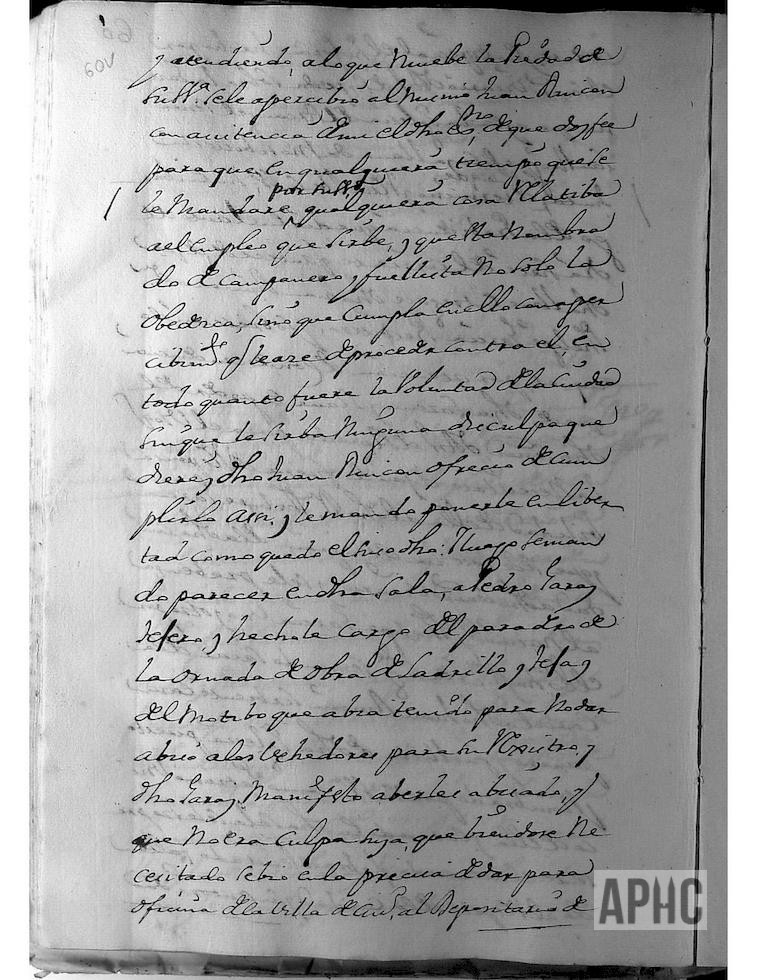 60V
y atendiendo, alo que Muebe la Piedad de
su sª. sele apercibio al mismo Juan Rincon
con asistencia de mi el dho esno, de que doy fee
para que en qualquiera tiempo que se
por su sª
le Mandare, qualquiera cosa Relatiba
a el empleo que sirbe, y que esta Nombra
do de Campanero, y fuellista No solo la
obedezca, sino que Cumpla en ello con aper
cibimto q se leara de proceder contra el, en
todo quanto fuere la Voluntad de la Ciudad
sin que le sirba Ninguna disculpa que
diera, y dho Juan Rincon ofrecio de Cum
plirlo assi, y le mando ponerle en liber
tad como quedo el suso dho: Y luego se man
do parecer en dha sala, a Pedro Garay
tejero, y hechole Cargo del paradro de
la ornada de obra de Ladrillo y teja y
del Motibo que abia tenido para No dar
abiso a los Vehedores para su Rexistro, y
dho Garay, Manifesto aberles abisado, y
que No era Culpa suya, que biendose Ne
cesitado se bio en la precisa de dar para
oficina de la Villa de Ciud, al Depositario de
APHC